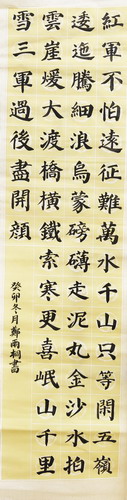 紅軍不怕遠征難萬水千山只等閑五嶺
逶迤騰細浪烏蒙磅礴走泥丸金沙水拍
雲崖煖大渡橋橫鐵索寒更喜岷山千里
雪三軍過後盡開顏
癸卯冬月鄭雨桐書